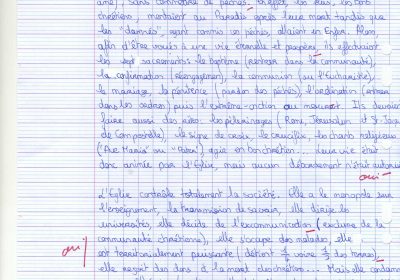 âme), sans commettre de péchés. En effet, les élus, les bons
chrétiens, montaient au Paradis après leur mort tandis que
les "damnés", ayant commis un péché, allaient en Enfer. Alors,
afin d'être voués à une vie éternelle et prospère, ils effectuaient
les sept sacrements : le baptême (rentrer dans la communauté),
la confirmation (réengagement), la communion (ou l'Eucharistie),
le mariage, la pénitence (pardon des péchés), l'ordination (entrer
dans les ordres) puis l'extrême-onction au mourant. Ils devaient
faire aussi des rites : les pélerinages (Rome, Jérusalem et St Jacques
de Compostelle), le signe de croix, le crucifix, les chants religieux
("Ave Maria" ou "Pater") agir en bon chrétien. Leur vie était
donc animée par l'Eglise, mais aucun débordement n'était autorisé.
oui
L'Eglise contrôle totalement la société. Elle a le monopole sur
l'enseignement, la transmission du savoir, elle dirige les
universités, elle décide de l'excommunication (exclure de la
oui
communauté chrétienne), elle s'occupe des malades, elle
est territorialement puissante (détient voire des terres),
elle reçoit des dons à la mort des chrétiens. Mais elle condamne